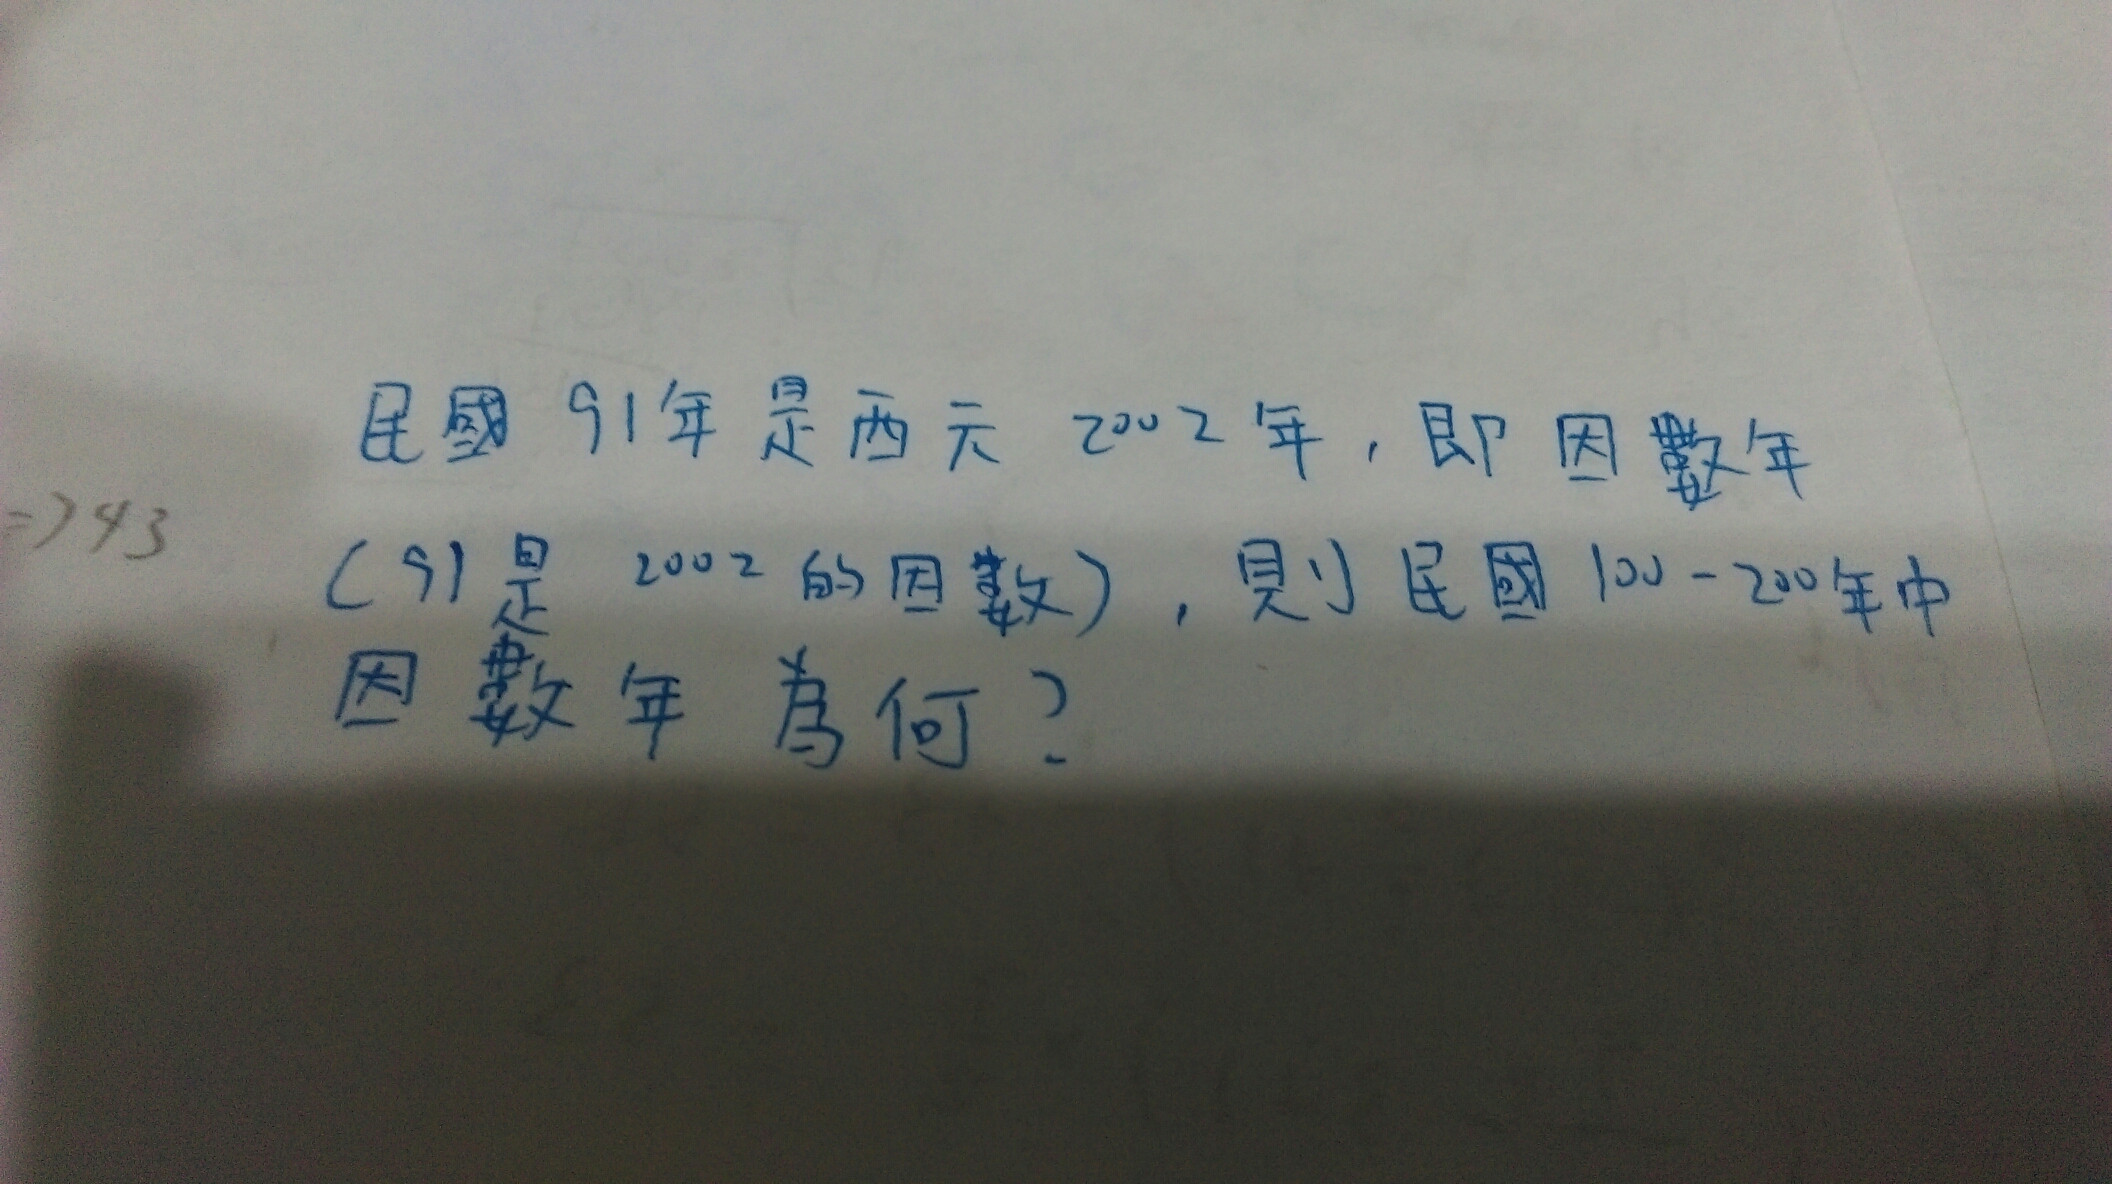 民國 91年是西元 2002年，即因數年
=>43
(91是 2002 的因數)，則民國 100-200年中
因數年為何?